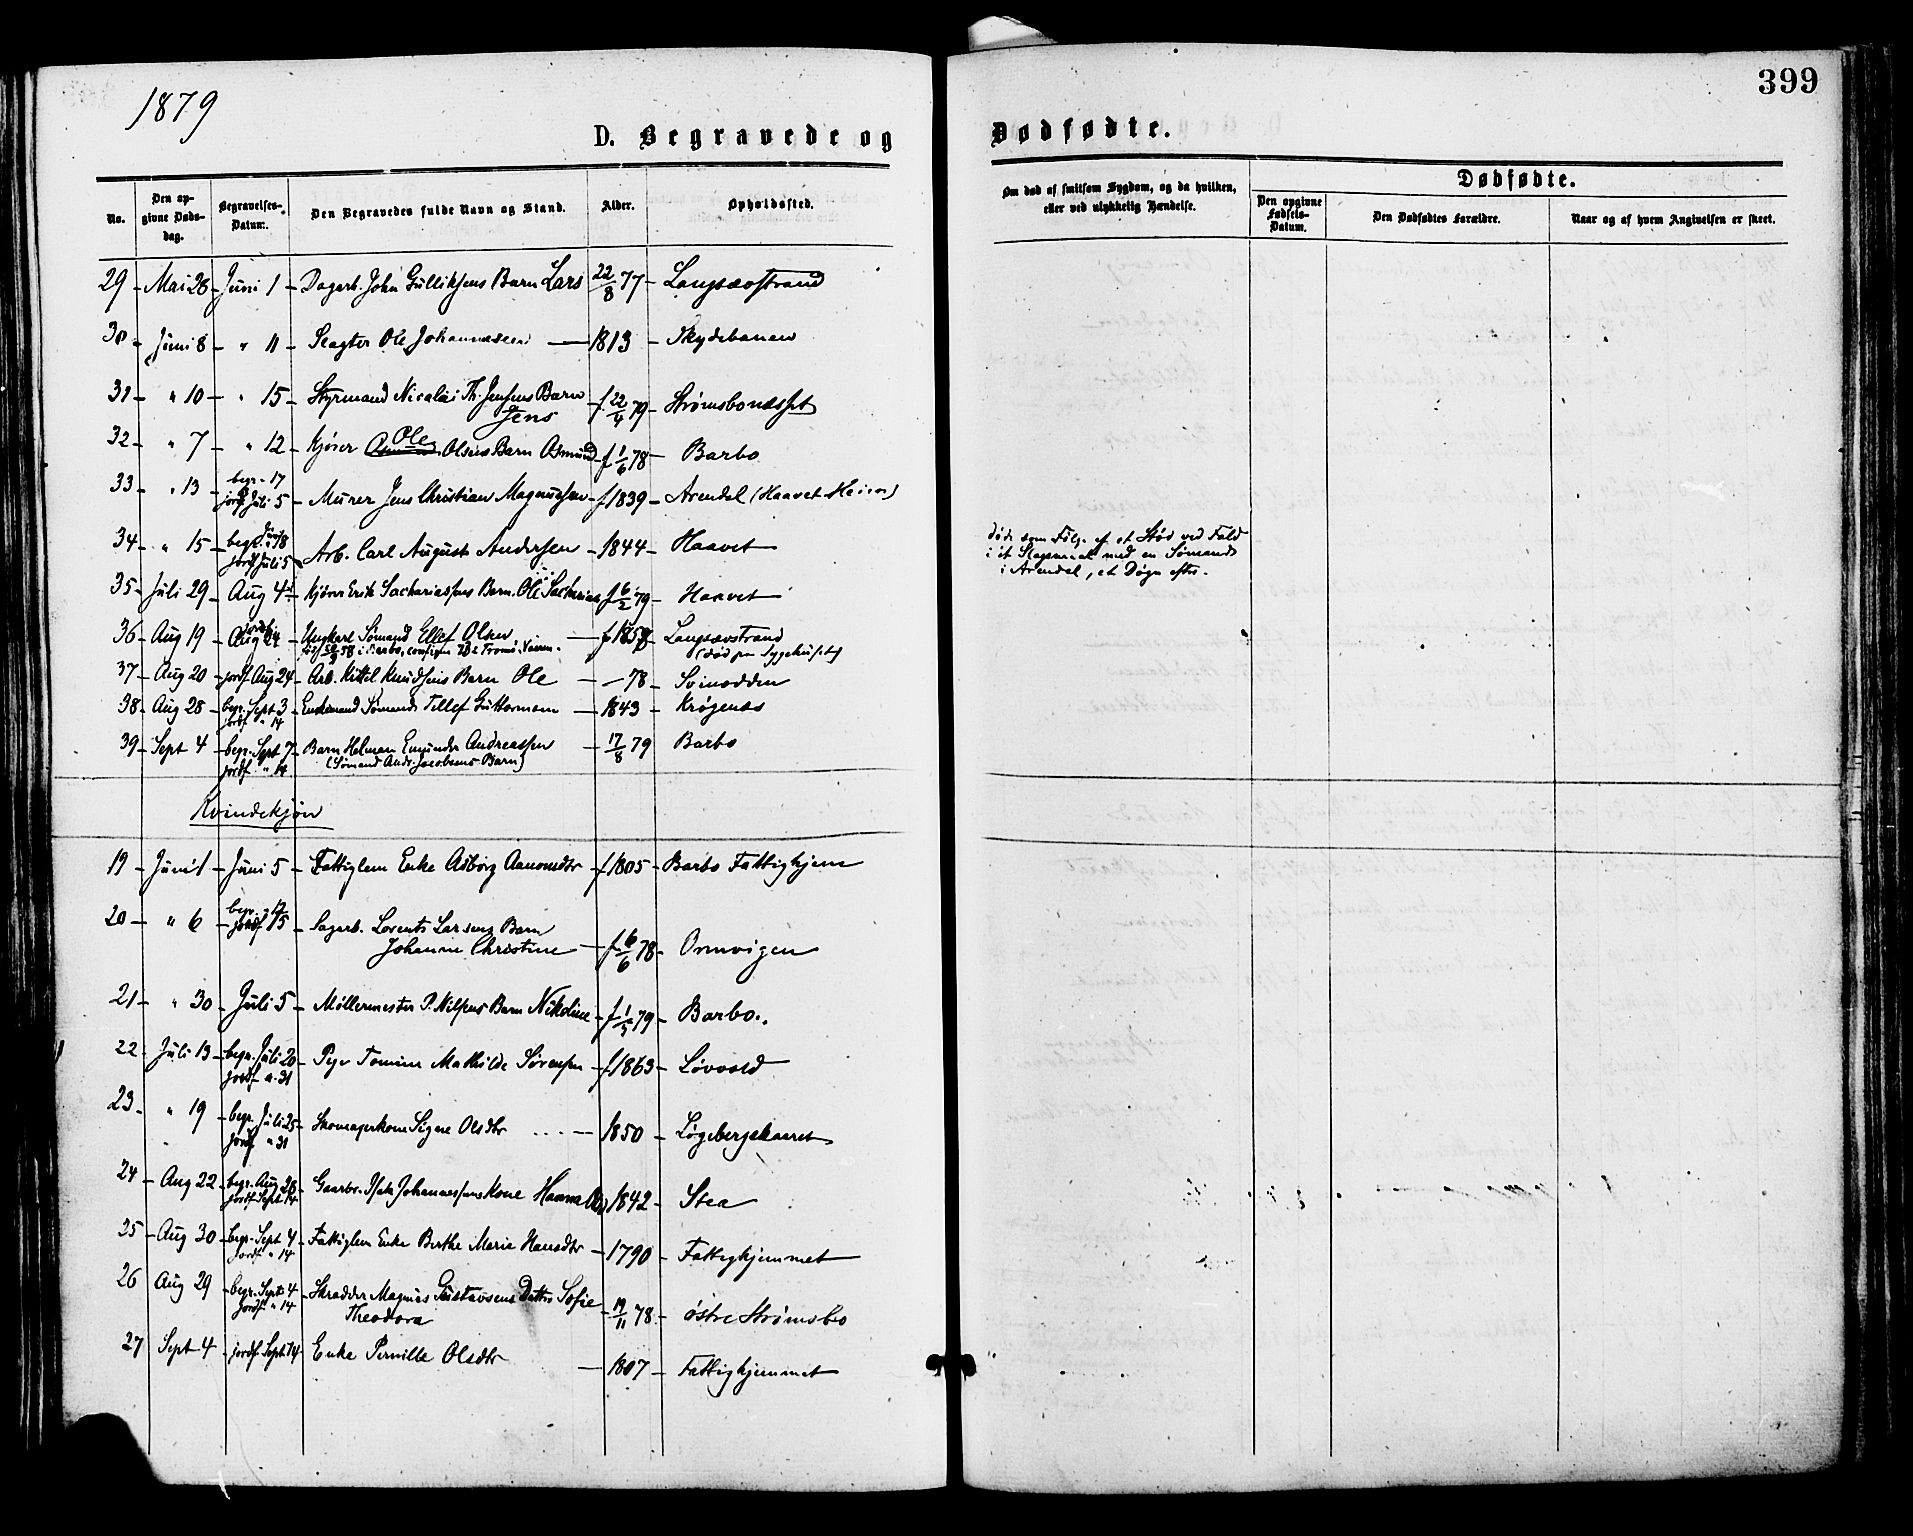 1879
399
D. Begravede og Dødfødte.
No.
Den opgivne Døds-dag.
Begravelses-Datum.
Den Begravedes fulde Navn og Stand.
Alder.
Opholdssted.
Om død af smitsom Sygdom, og da hvilken, eller ved ulykkelig Hændelse.
Dødfødte.
Den opgivne Fødsels-Datum.
Den Dødfødtes Forældre.
Naar og af hvem Angivelsen er skeet.
29 Mai 28 Juni 1 Dagarb. John Gulliksens Barn Lars 22/8 77 Langsævstrand
30 Juni 8 " 11 Slagter Ole Johannessen 1813 Skydebanen
31 " 10 " 15 Styrmand Nicolai Th. Jensens Barn
Jens f. 22/4 79 Strømsbonæsset
32 " 7 " 12 Kjører Ole Olsens Barn Osmund f 1/6 78 Barbo
33 " 13 begr. " 17
jordf Juli 5 Murer Jens Christian Magnussen f 1839 Arendel (Haavet Heien)
34 " 15 begr. Juni 18
jordf Juli 5 Arb. Carl August Andersen 1844 Haavet
døde som Følge af et Stød ved Fald
i et Slagsmaal med en Sømand
i Arendal, et Døgn efter.
35 Juli 29 Aug 4 Kjører Erik Sachariassens Barn Ole Sacharias f 6/2 79 Haavet
36 Aug 19 jordf. Aug 24 Ungkarl Sømand Ellef Olsen f 1858 Langsævstrand
58 i Barbo, confirm 73 i Tromø (død paa Sygehuset)
37 Aug 20 jordf Aug 24 Arb. Kittel Knudsens Barn Ole 78 Svinodden
38 Aug 28 begr. Sept 3
jordf. " 14 Enkemand Sømand Tellef Guttormsen 1843 Krøgenæs
39 Sept 4 begr. Sept 7 Barn Helman Emunder Andreassen 17/8 79 Barbo
jordf. " 14 (Sømand Andr. Jacobsens Barn)
Kvindekjøn
19 Juni 1 Juni 5 Fattiglem Enke Asborg Aanondsdtr f 1805 Barbo Fattighjem
20 " 6 begr. 12
jordf 15 Sagarb. Lorents Larsens Barn
Johanne Christine f. 6/6 78 Ormvigen
21 " 30 Juli 5 Møllermester P. Nilsens Barn Nikoline f 1/5 79 Barbo
22 Juli 13 begr. Juli 20
jordf " 31 Pige Tomine Mathilde Sørensen f 1863 Løvvold
23 " 19 begr. Juli 25
jordf " 31 Skomagerkone Signe Olsdtr 1850 Løgebergskaaret
24 Aug 22 begr. Aug 28
jordf Sept 14 Gaarbr. Isak Johannessens Kone Hanna 1842 Stea
25 Aug 30 begr. Sept 4
jordf " 14 Fattiglem Enke Berthe Marie Hansdtr 1790 Fattighjemmet
26 Aug 29 begr. Sept 4
jordf " 14 Skrædder Magnus Gustavsens Datter Sofie
Theodora 19/11 78 østre Strømsbo
27 Sept 4 jordf Sept 14 Enke Pernille Olsdtr 1807 Fattighjemmet